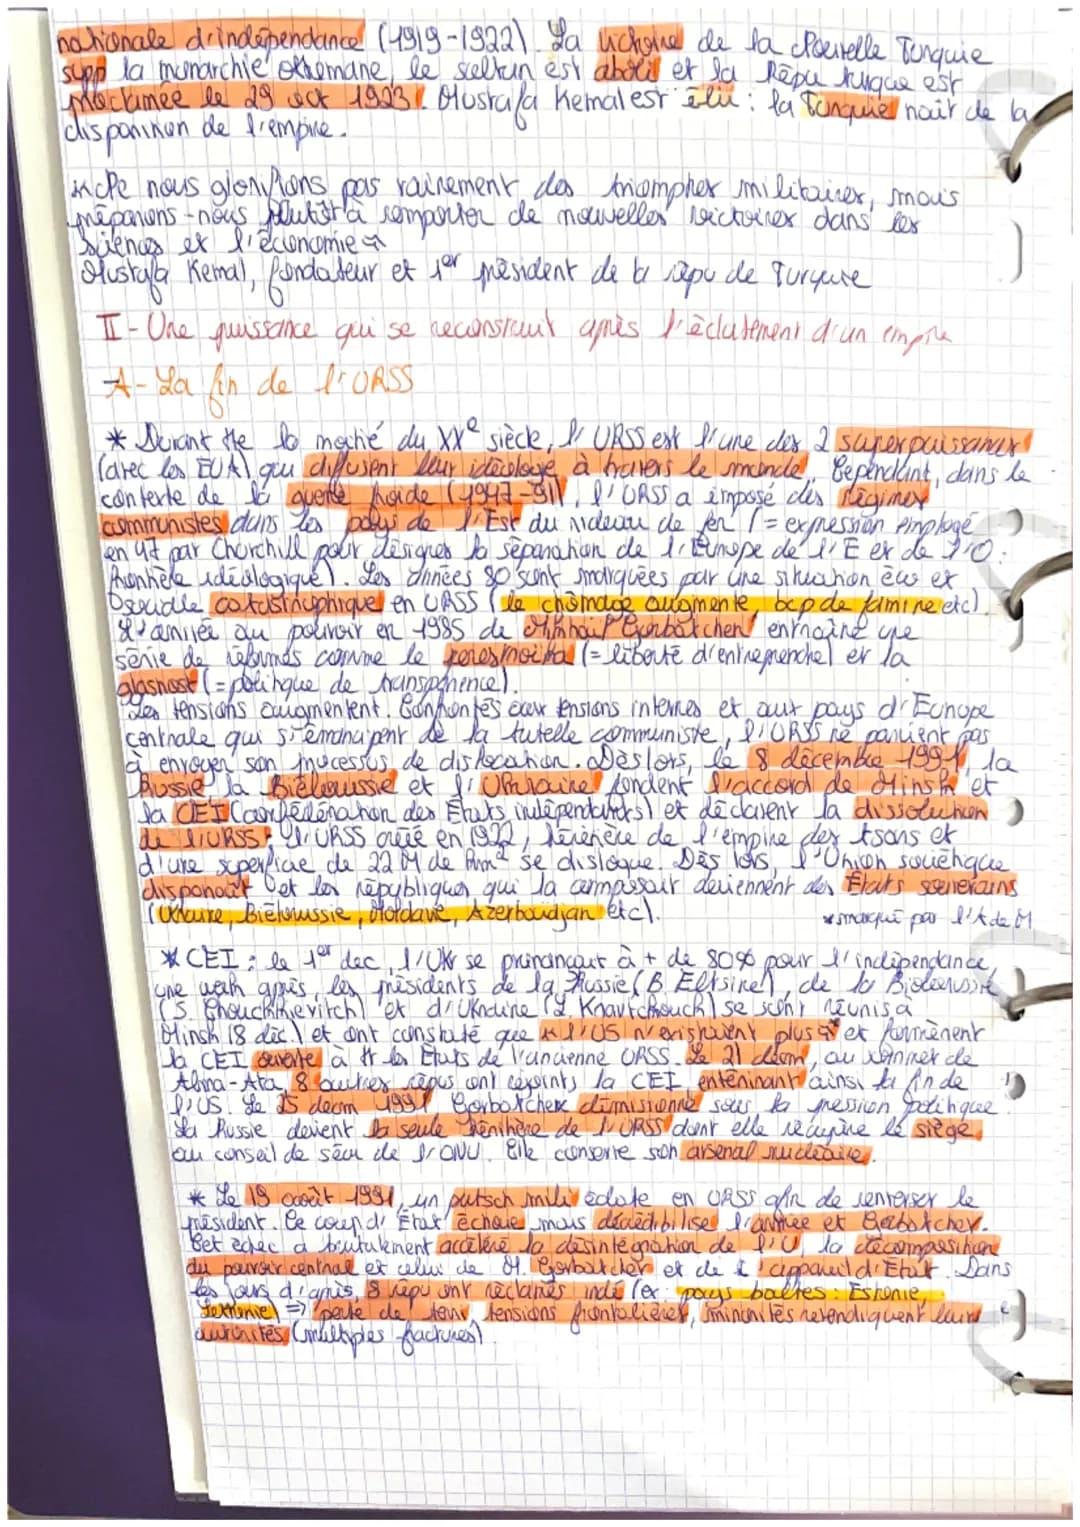 nationale d'indépendance (1919-1922). La victoire de la Nouvelle Turquie
supp la monarchie ottomane, le sultan est aboli et la Répu turque est
proclamée le 29 oct 1923. Mustafa Kemal est élu : la Turquie naît de la
disparition de l'empire.
« Ne nous glorifions pas vainement des triomphes militaires, mais
préparons-nous plutôt à remporter de nouvelles victoires dans les
sciences et l'économie »
Mustafa Kemal, fondateur et 1er président de la répu de Turquie
II - Une puissance qui se reconstruit après l'éclatement d'un empire
A - La fin de l'URSS
* Durant la moitié du XXe siècle, l'URSS est l'une des 2 superpuissances
(avec les EUA) qui diffusent leur idéologie à travers le monde. Cependant, dans le
contexte de la guerre froide (1947-91), l'URSS a imposé des régimes
communistes dans les pays de l'Est du rideau de fer (= expression employé
en 47 par Churchill pour désigner la séparation de l'Europe de l'E et de l'O :
frontière idéologique). Les années 80 sont marquées par une situation éco et
sociale catastrophique en URSS (le chômage augmente, bcp de famine etc).
L'arrivée au pouvoir en 1985 de Gorbatchev entraîne une
série de réformes comme le perestroïka (= liberté d'entreprendre) et la
glasnost (= politique de transparence).
Les tensions augmentent. Confrontés aux tensions internes et aux pays d'Europe
centrale qui s'émancipent de la tutelle communiste, l'URSS ne parvient pas
à enrayer son processus de dislocation. Dès lors, le 8 décembre 1991, la
Russie la Biélorussie et l'Ukraine fondent l'accord de Minsk et
la CEI (confédération des États indépendants) et déclarent la dissolution
de l'URSS. L'URSS créé en 1922, héritière de l'empire des tsars et
d'une superficie de 22 M de km² se disloque. Dès lors, l'Union soviétique
disparaît et les républiques qui la composait deviennent des États souverains
(Ukraine, Biélorussie, Moldavie, Azerbaïdjan etc).
* marqué par l'A de M
* CEI : le 1er dec, l'Ukr se prononçait à + de 80% pour l'indépendance,
une après, les présidents de la Russie (B. Eltsine), de la Biélorussie
(S. Chouchkievitch) et d'Ukraine (L. Kravtchouk) se sont réunis à
Minsk (8 déc) et ont constaté que « l'US n'existaient plus » et formèrent
la CEI ouverte à tt les États de l'ancienne URSS. Le 21 décem, au sommet de
Alma-Ata, 8 autres répus ont rejoints la CEI, entérinant ainsi la fin de
l'US. Le 25 décem 1991 Gorbatchev démissionne sous la pression politique.
La Russie devient la seule héritière de l'URSS dont elle récupère le siège
au conseil de sécu de l'ONU. Elle conserve son arsenal nucléaire.
* Le 19 août 1991, un putsch mili éclate en URSS afin de renverser le
président. Ce coup d'État échoue mais décrédibilise l'armée et Gorbatchev.
Cet échec a brutalement accéléré la désintégration de l'U, la décomposition
du pouvoir central et celui de M. Gorbatchev et de l'appareil d'État. Dans
les jours d'après, 8 répu ont réclamés indé (ex: pays baltes : Estonie,
Lettonie) => perte de terri, tensions frontalières, minorités revendiquent leurs
autorités (multiples fractures).